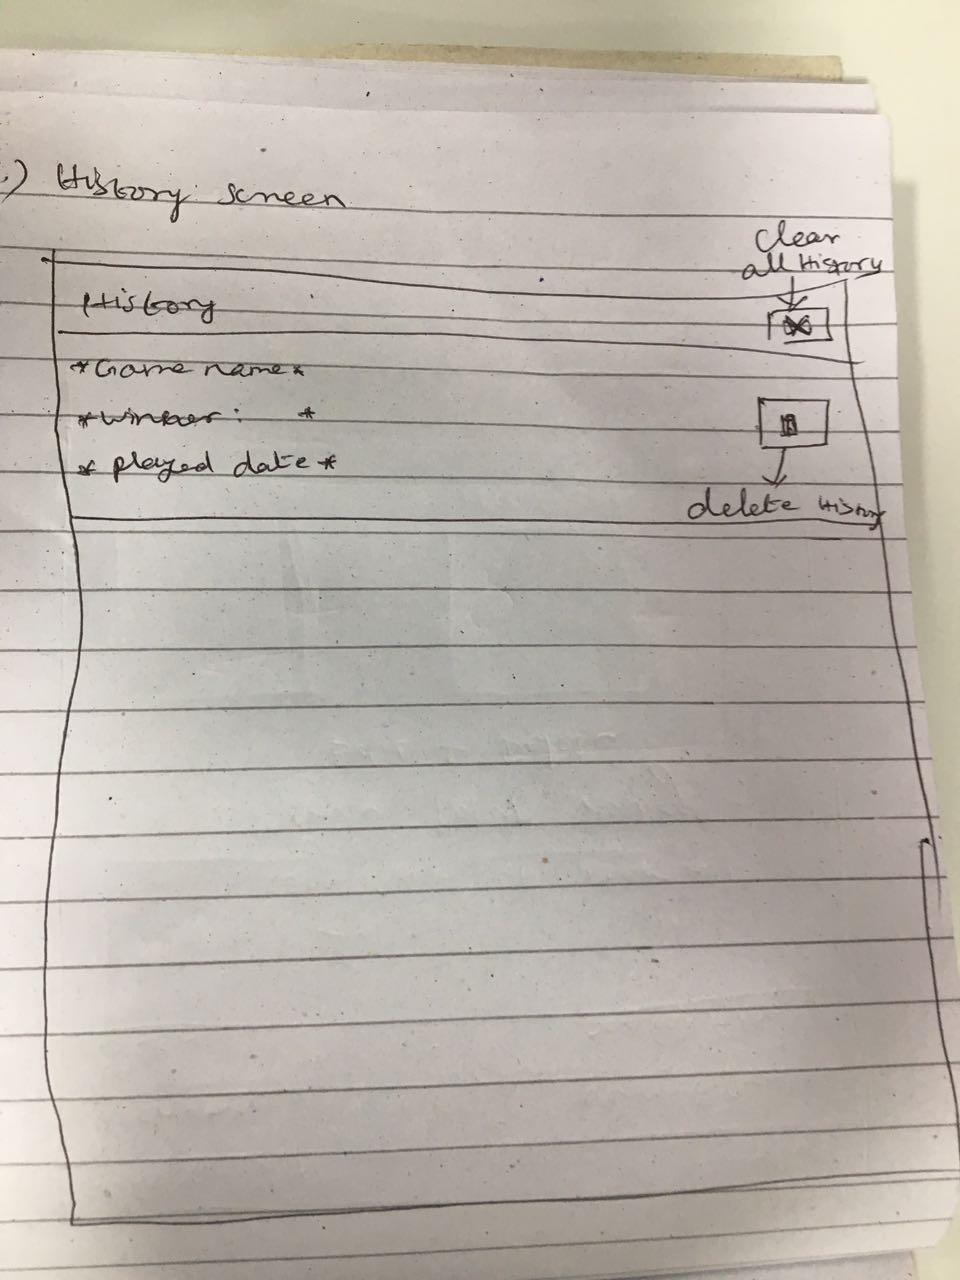 .) History screen
clear
all History
History
*Game name*
*winner: *
* played date *
delete History